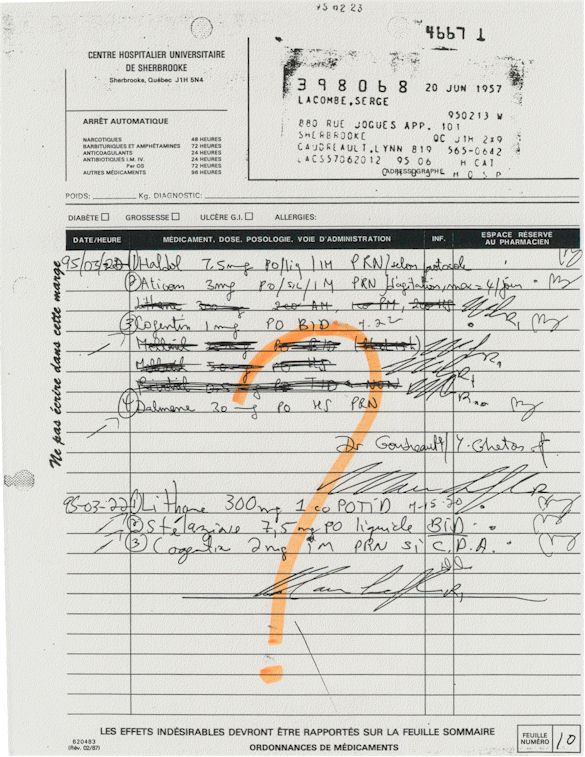 95 02 23
4667 1
CENTRE HOSPITALIER UNIVERSITAIRE
DE SHERBROOKE
Sherbrooke, Québec J1H 5N4
398068 20 JUN 1957
LACOMBE,SERGE
950213 W
880 RUE JOGUES APP. 101
SHERBROOKE QC J1H 2X9
CAUDREAULT,LYNN 819 565-0642
LACS57062012 95 06 H CAT
ADRESSOGRAPHE H O S P
ARRÊT AUTOMATIQUE
NARCOTIQUES 48 HEURES
BARBITURIQUES ET AMPHÉTAMINES 72 HEURES
ANTICOAGULANTS 24 HEURES
ANTIBIOTIQUES I.M. IV. 24 HEURES
Per OS 72 HEURES
AUTRES MÉDICAMENTS 96 HEURES
POIDS: Kg. DIAGNOSTIC:
DIABÈTE GROSSESSE ULCÈRE G.I. ALLERGIES:
DATE/HEURE MÉDICAMENT, DOSE, POSOLOGIE, VOIE D'ADMINISTRATION INF. ESPACE RÉSERVÉ
AU PHARMACIEN
Ne pas écrire dans cette marge
95/03/20 1 Haldol 7.5mg PO/liq/IM PRN/selon protocole
2 Ativan 3mg PO/S/L/IM PRN/agitation, max 4/jour
Lithane 300mg
3 Cogentin 1mg PO BID
Mellaril
Mellaril PO HS
4 Dalmane 30mg PO HS PRN
Dr Goudreault/Y. Ghetas
95-03-22 1 Lithane 300mg 1 co PO TID
2 Stélazine 7,5mg PO liquide BID
3 Cogentin 2mg IM PRN si C.D.A.
LES EFFETS INDÉSIRABLES DEVRONT ÊTRE RAPPORTÉS SUR LA FEUILLE SOMMAIRE
ORDONNANCES DE MÉDICAMENTS
620483
(Rév. 02/87)
FEUILLE
NUMÉRO 10